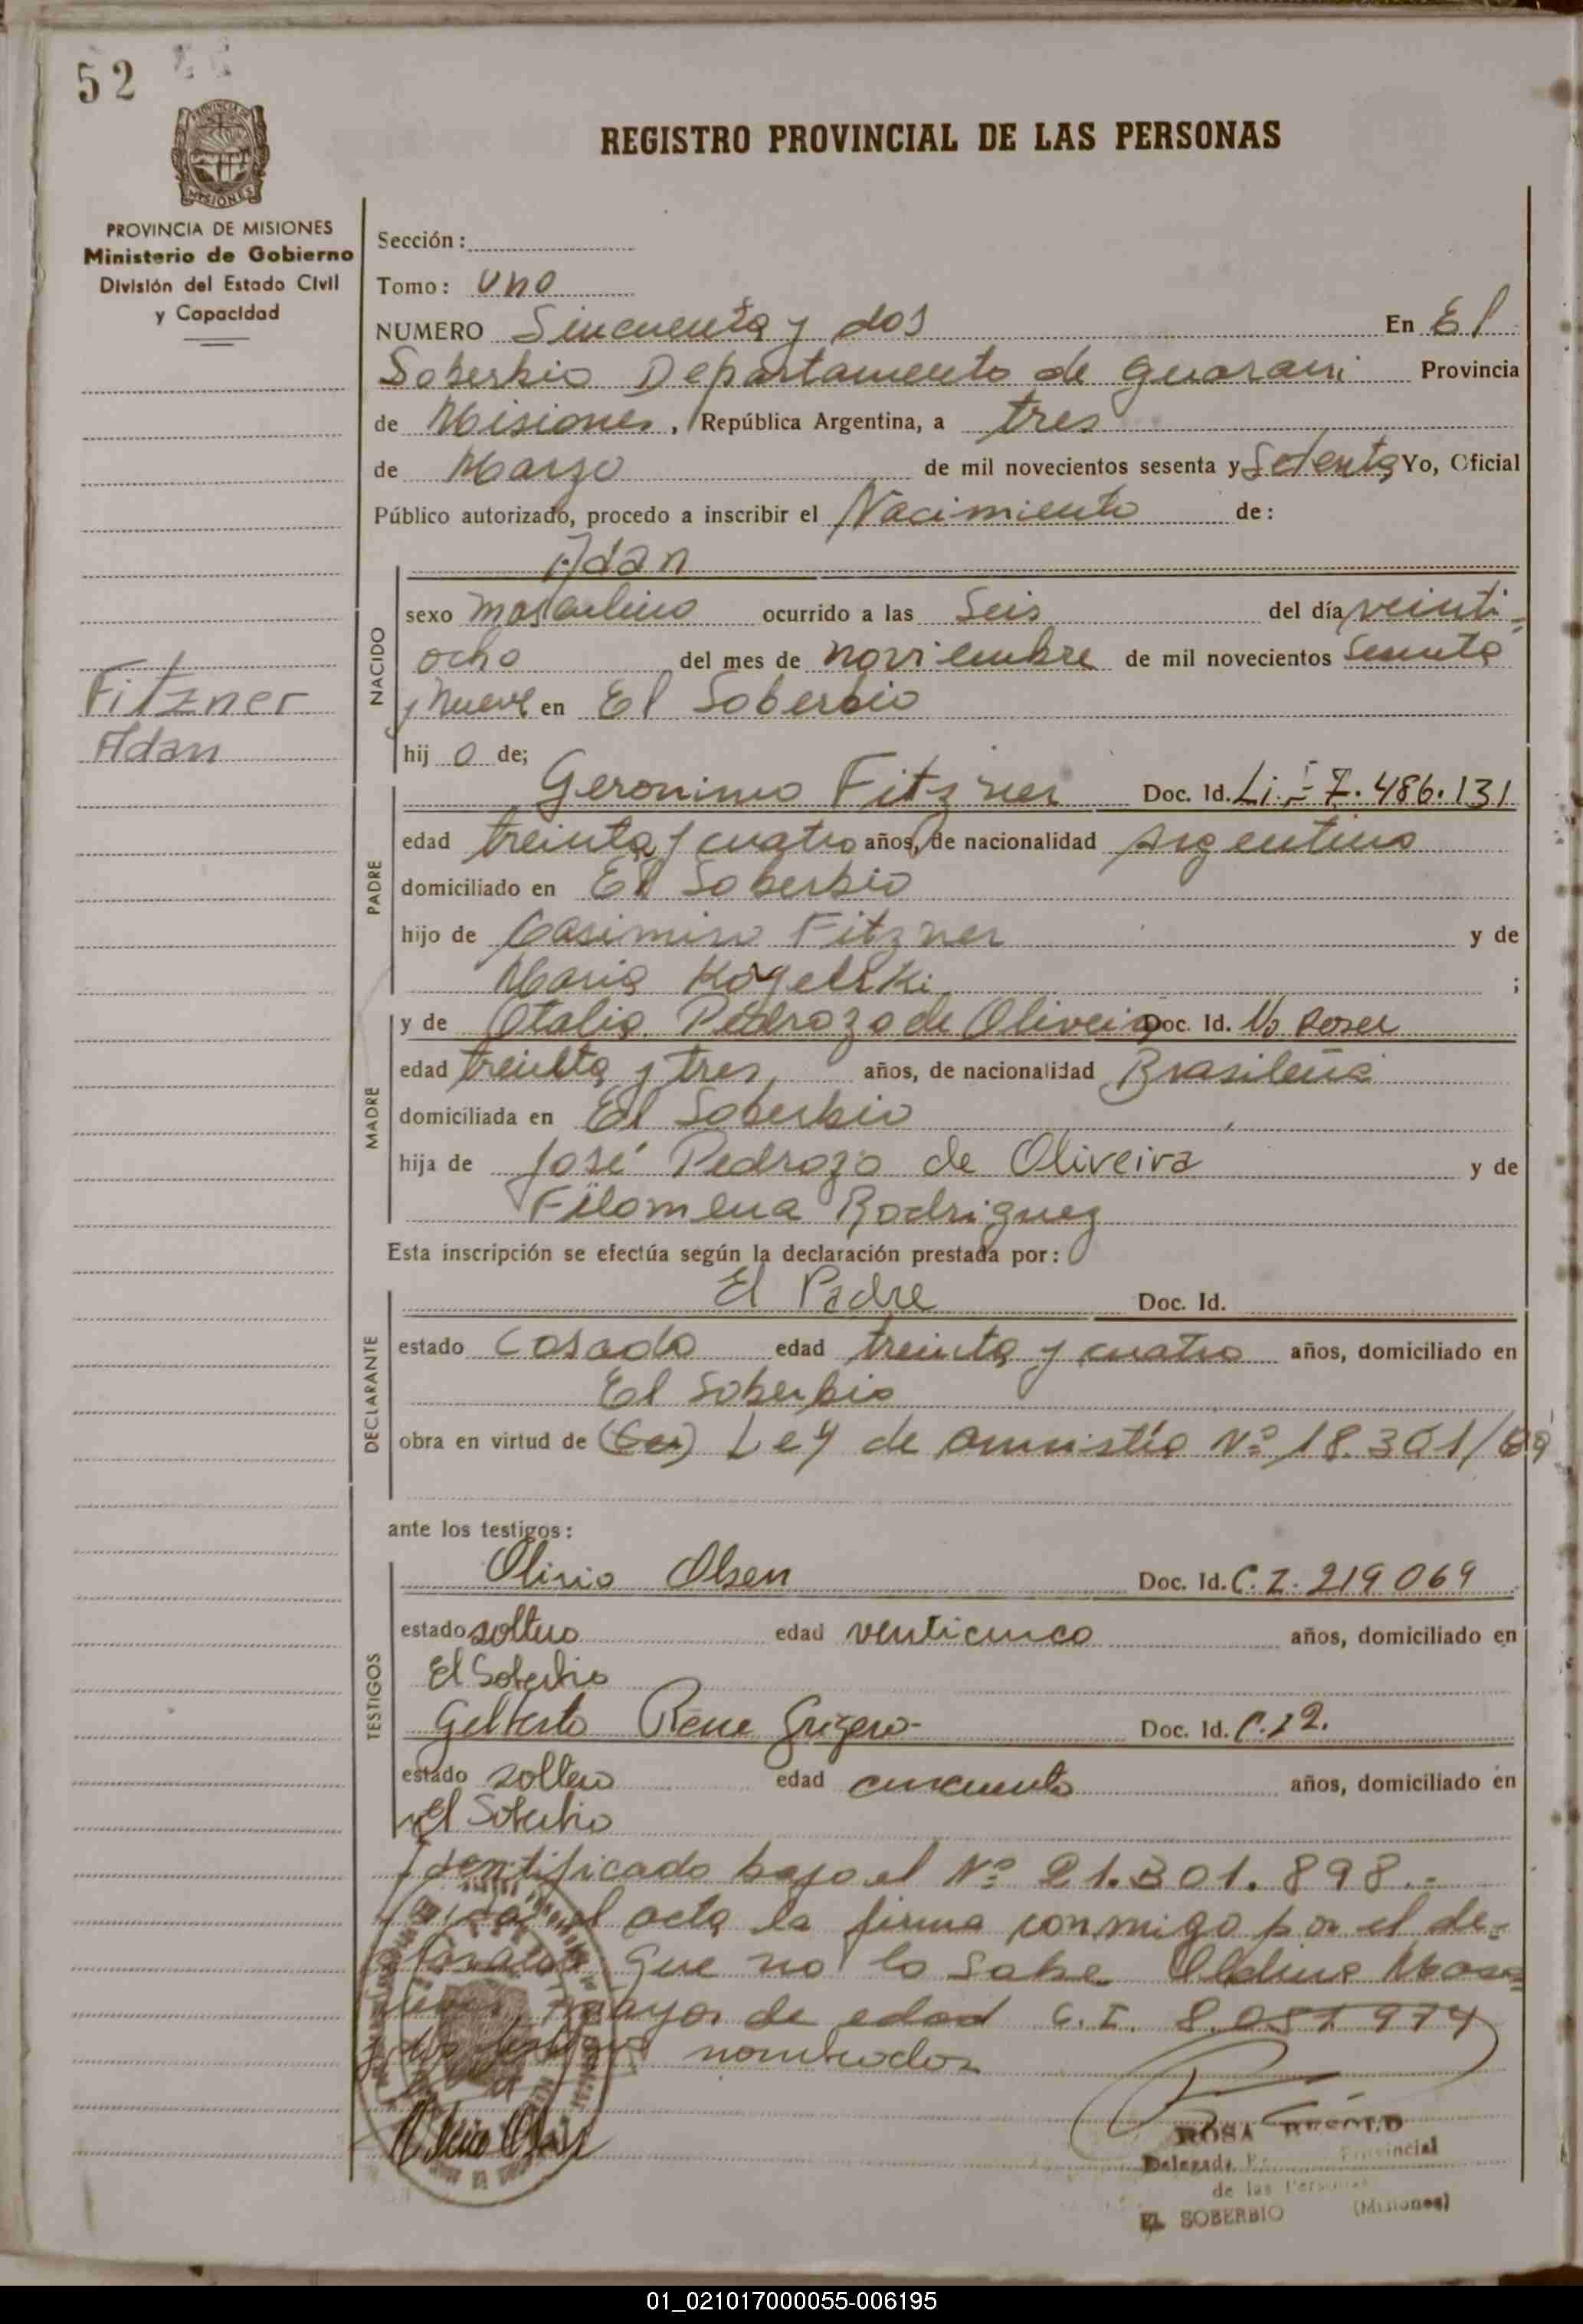 52
PROVINCIA DE MISIONES
Ministerio de Gobierno
División del Estado Civil
y Capacidad
REGISTRO PROVINCIAL DE LAS PERSONAS
Sección:
Tomo: uno
NUMERO Sincuenta y dos En El
Soberbio Departamento de guarani Provincia
de Misiones, República Argentina, a tres
de Marzo de mil novecientos sesenta y Setenta Yo, Oficial
Público autorizado, procedo a inscribir el Nacimiento de:
Adan
NACIDO
sexo masculino ocurrido a las Seis del día veinti-
ocho del mes de noviembre de mil novecientos sesenta
y nueve en El Soberbio
hij o de;
Fitzner
Adan
PADRE
Geronimo Fitzner Doc. Id. L.i.- 7.486.131
edad treinta y cuatro años, de nacionalidad Argentino
domiciliado en El Soberbio
hijo de Casimiro Fitzner y de
Maria Kogelski ;
MADRE
y de Otalia Pedrozo de Oliveira Doc. Id. No posee
edad treinta y tres años, de nacionalidad Brasileña
domiciliada en El Soberbio
hija de José Pedrozo de Oliveira y de
Filomena Rodriguez
Esta inscripción se efectúa según la declaración prestada por:
DECLARANTE
El Padre Doc. Id.
estado Casado edad treinta y cuatro años, domiciliado en
El Soberbio
obra en virtud de Ley de amnistía Nº 18.301/69
ante los testigos:
TESTIGOS
Olinio Olsen Doc. Id. C.I. 219069
estado soltero edad venticinco años, domiciliado en
El Soberbio
Gilberto Rene Doc. Id.
estado soltero edad cincuenta años, domiciliado en
El Soberbio
Identificado bajo el Nº 21.301.898.-
el acta la firma conmigo por el de-
que no lo sabe
mayor de edad C.I. 8.081.974
y los testigos nombrados
ROSA
Delegada Provincial
de las Personas
EL SOBERBIO (Misiones)
01_021017000055-006195